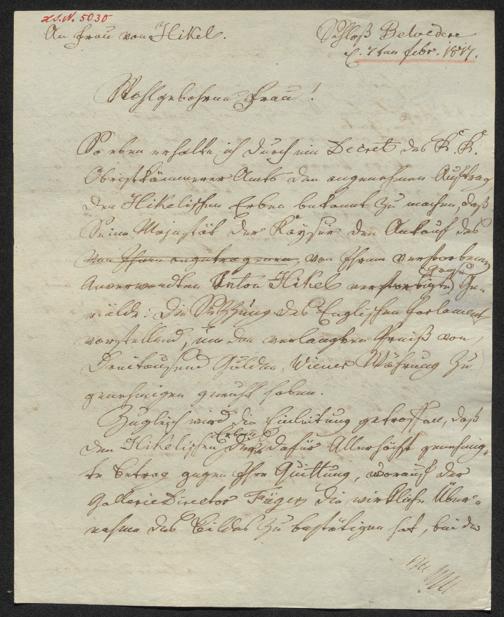 Z.S.N. 5030
An Frau von Hikel.
Schloß Belvedere
d. 7ten febr. 1817.
Wohlgebohrne Frau!
So eben erhalte ich durch ein Decret des K. K.
Obristkämmerer Amts den angenehmen Auftrag
den Hikelischen Erben bekannt zu machen, daß
Seine Majestät der Kayser den Ankauf des
von Ihnen angetragenen, von Ihrem verstorbenen
Anverwandten Anton Hikel verfertigten Ge-
mälde: Die Sitzung des Englischen Parlament
vorstellend, um den verlangten Preiß von
Dreitausend Gulden Wiener Währung zu
genehmigen geruht haben.
Zugleich wird die Einleitung getroffen, daß
den Hikelischen Erben der dafür Allerhöchst genehmig-
te Betrag gegen Ihre Quittung, worauf der
Gallerie Director Füger die wirkliche Über-
nahme des Bildes zu bestätigen hat, bei der